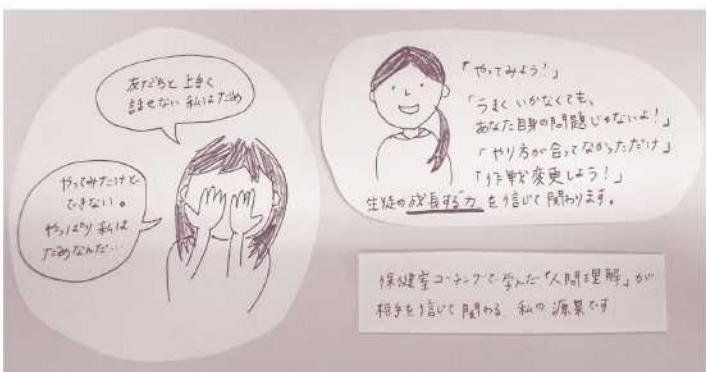 友だちと上手く
話せない 私はだめ
やってみたけど
できない。
やっぱり 私は
だめなんだ…
「やってみよう!」
「うまくいかなくても、
あなた自身の問題じゃないよ!」
「やり方が合ってなかっただけ」
「作戦変更しよう!」
生徒の成長する力を信じて関わります。
保健室コーチングで学んだ「人間理解」が
相手を信じて関わる 私の源泉です